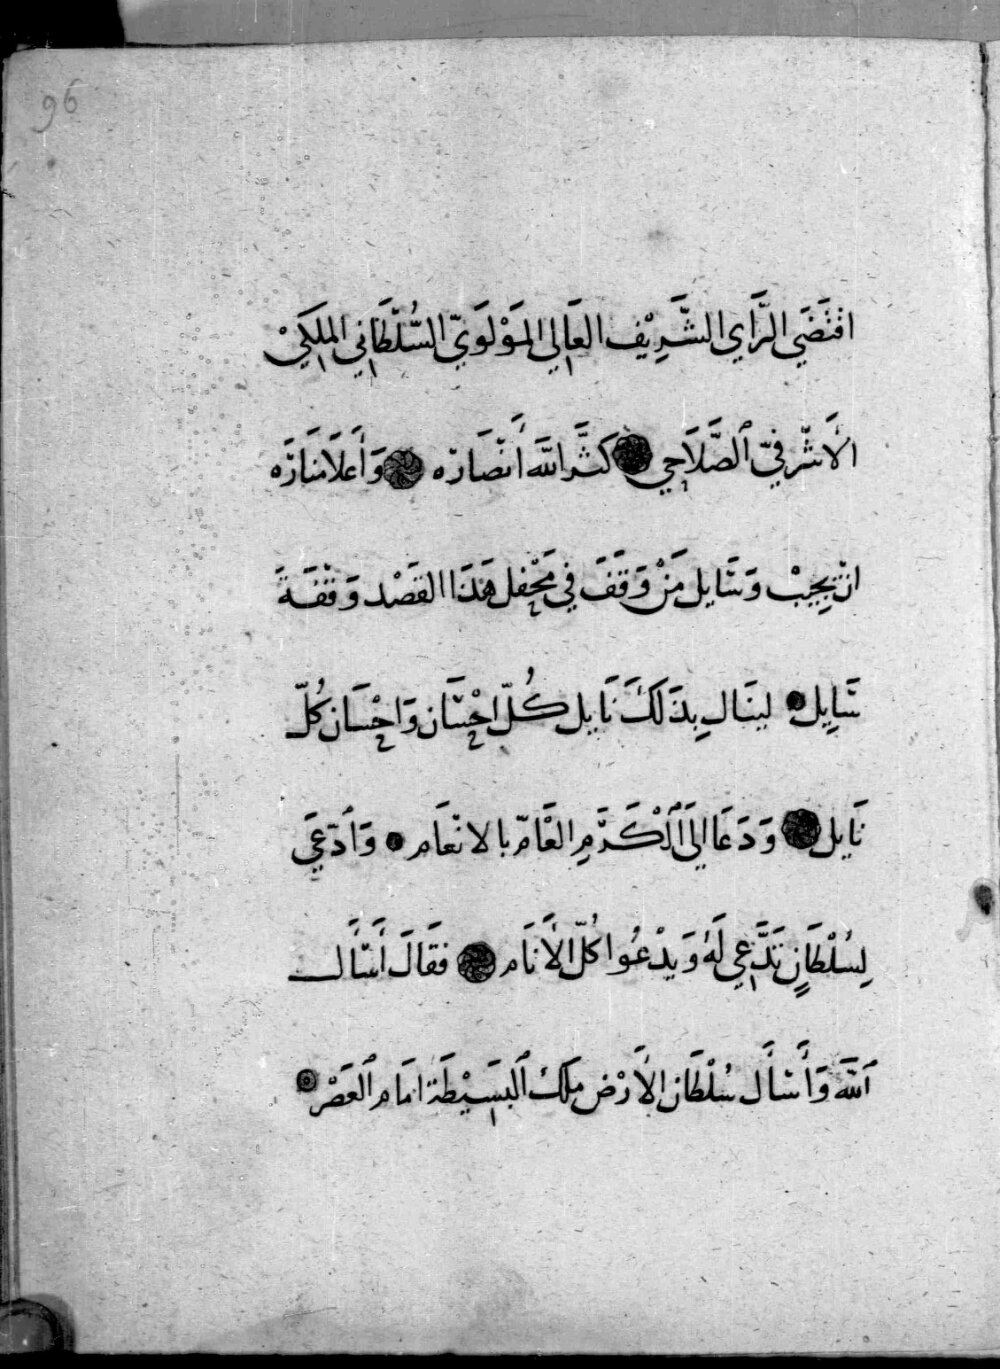 96
اقتَضَي الرَّاي الشَّرِيْف العَالي المَوْلَوَيّ السُّلْطَاني المِلكَيْ
الأشْرفيّ ٱلصَّلاَحِي كَثَّر اللَّه أَنْصَارَه وَأَعلاَ مَنَارَه
انْ يجِيبْ وَسَايل مَنْ وَقَفَ في مَحْفل هَذَا القَصْد وَقْفَةَ
سَايِل لينَال بِذَلكَ نَايل كُلّ احْسَان وَاحْسَان كُلّ
نَايل وَدَعَا اليَ ٱلْكَرَمِ العَامّ بالانْعَام وَٱدّعَي
لِسُلْطَانٍ تَدَّعِي لَهُ وَيدْعُوا كُلّ الأَنَام فقَالَ أَسْأَل
ٱللَّه وَأَسْأَل سُلْطَان الأَرْض مَلكَ ٱلبَسِيْطَة امَام ٱلعَصْر